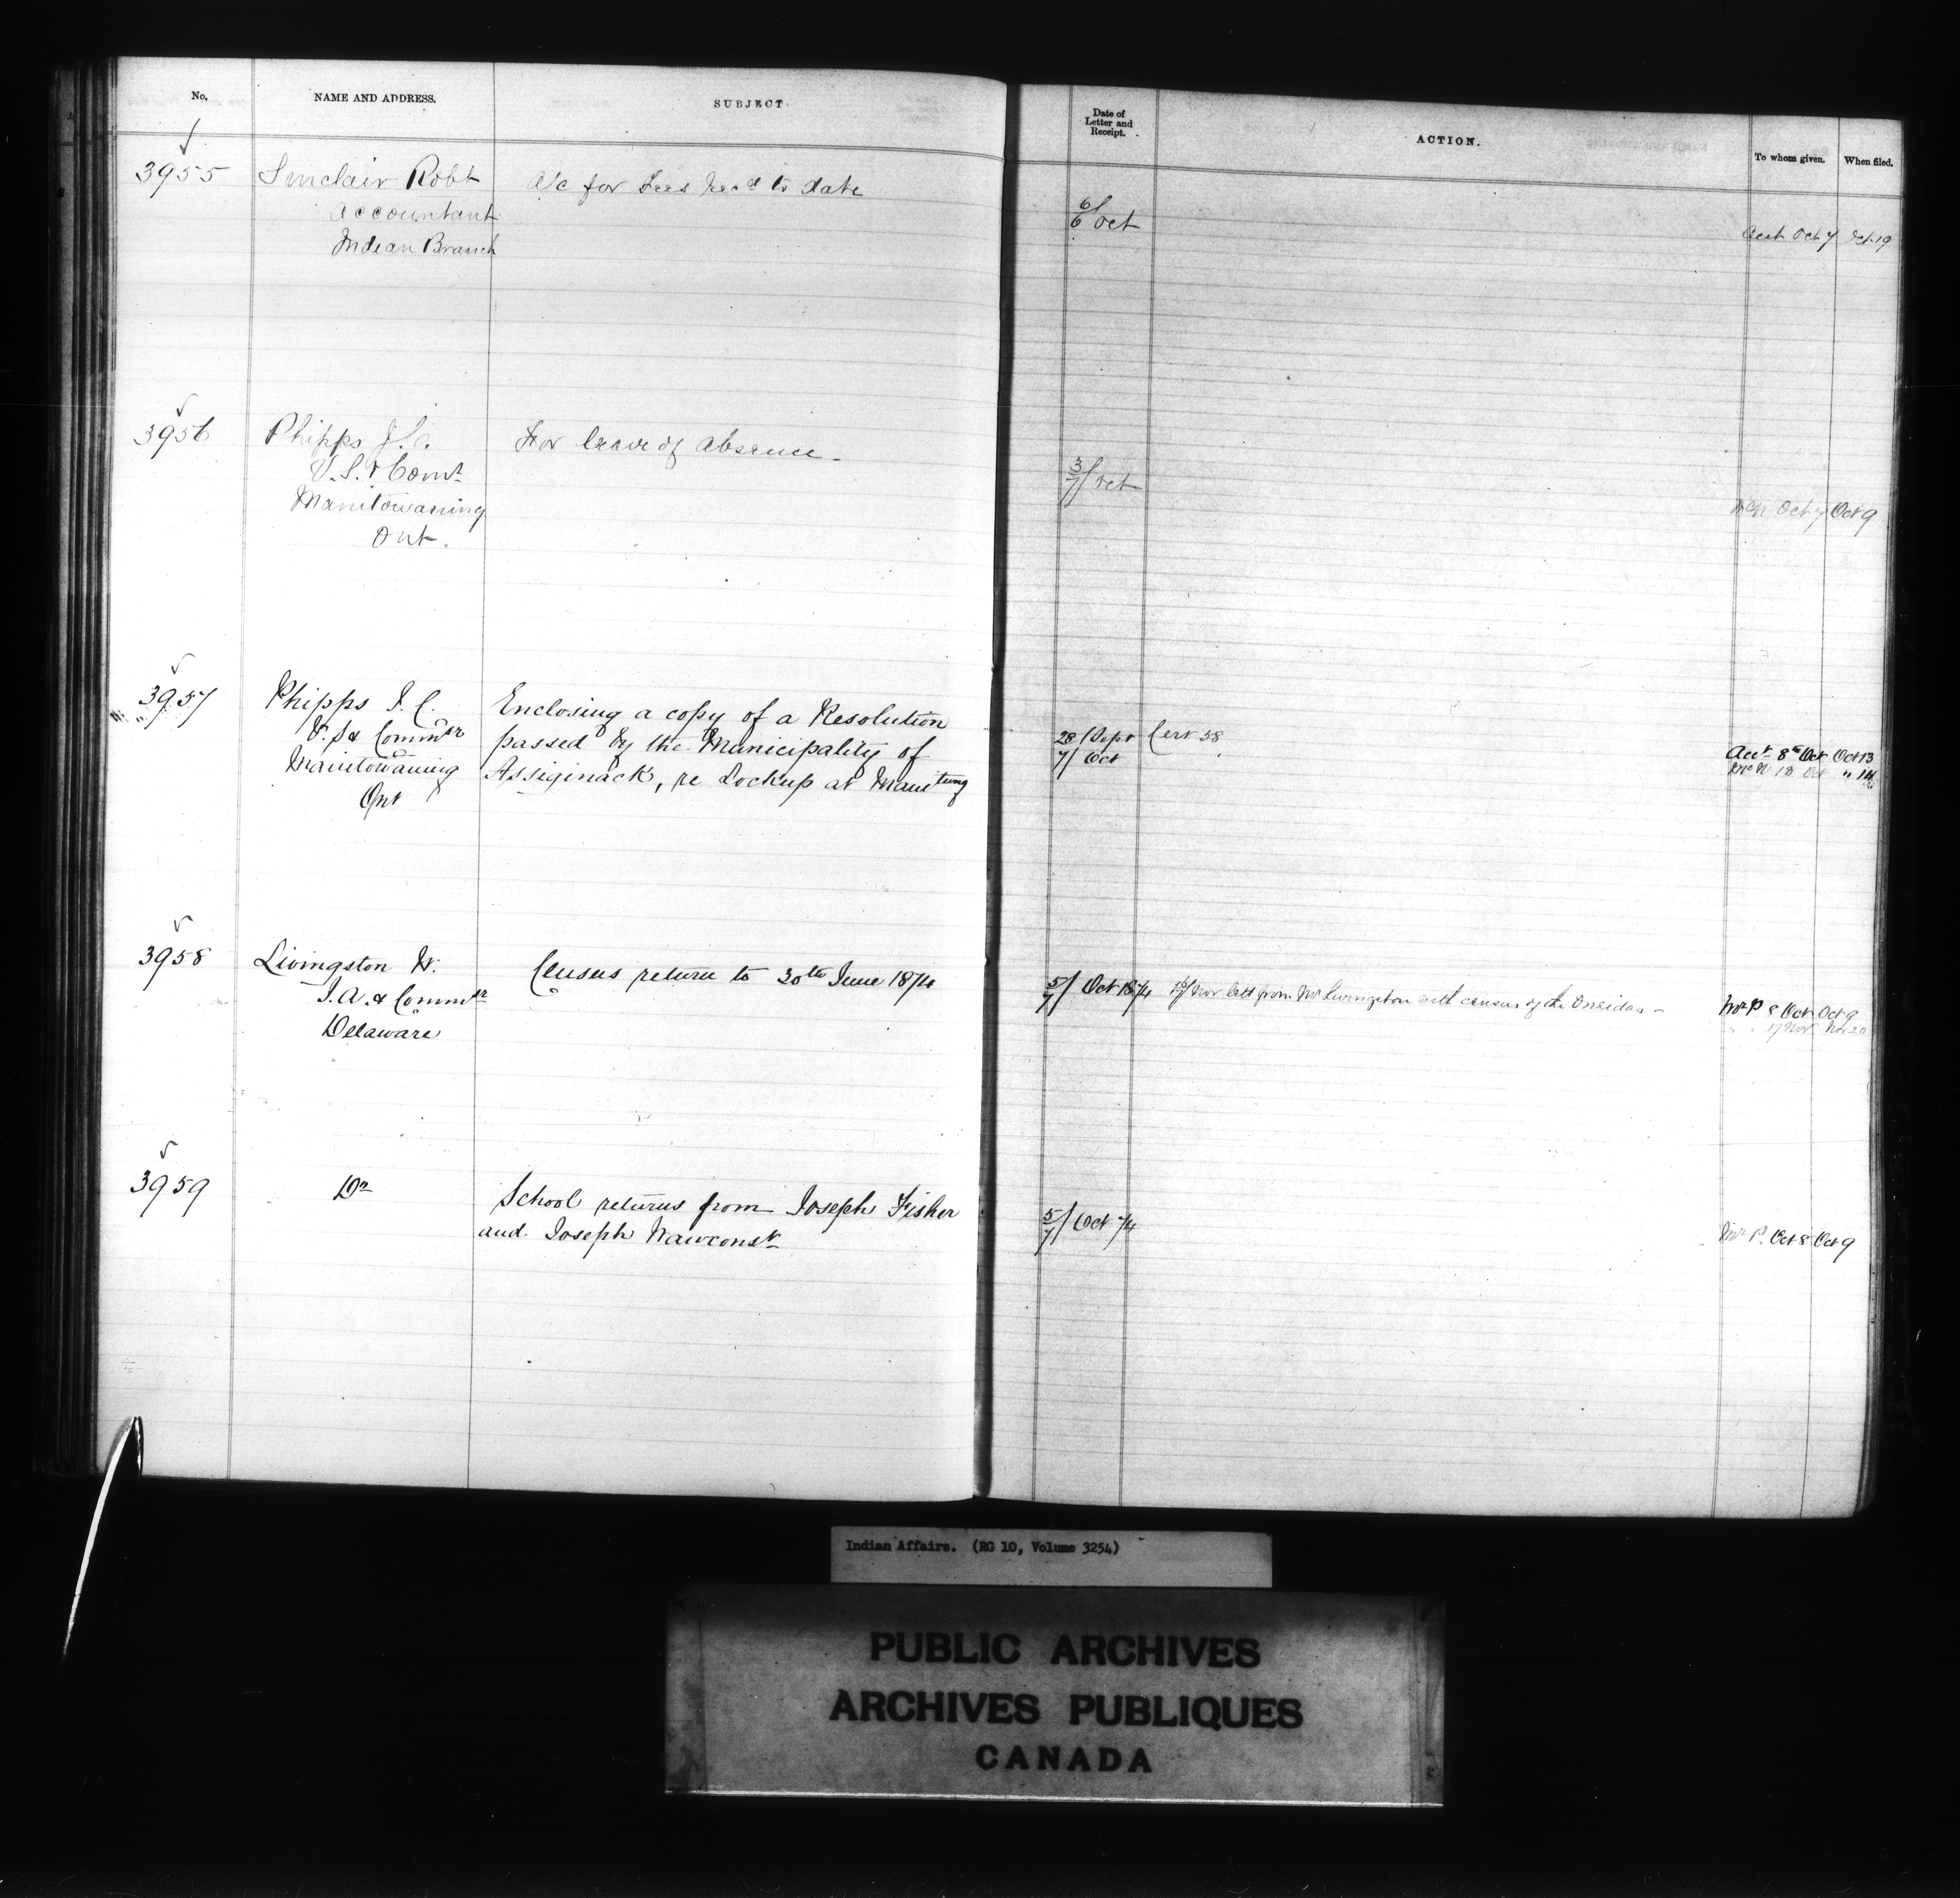 No.
NAME AND ADDRESS.
SUBJECT
Date of
Letter and
Receipt.
ACTION.
To whom given.
When filed.
3955
Sinclair Robt
Accountant
Indian Branch
a/c for Fees rec'd to date
6/6 Oct
Acct Oct 7 Oct 19
3956
Phipps J.C.
V.S. & Comr
Manitowaning
Ont.
For leave of absence.
3/7 Oct
Oct 7 Oct 9
3957
Phipps J. C.
V. S & Commsr
Manitowaning
Ont
Enclosing a copy of a Resolution
passed by the Municipality of
Assiginack, re Lockup at Manitung
28/Sept
7/Oct
Cert 58
Acct 8th Oct Oct 13
13 Oct " 14
3958
Livingston W.
I.A. & Commsr
Delaware
Census return to 30th June 1874
5/7 Oct 1874
16/17 Nov lett from Mr Livingston with census of the Oneidas -
Mr P 8 Oct Oct 9
" " 17 Nov Nov 20
3959
Do
School returns from Joseph Fisher
and Joseph
5/7 Oct 74
Mr P. Oct 8 Oct 9
Indian Affairs. (RG 10, Volume 3254)
PUBLIC ARCHIVES
ARCHIVES PUBLIQUES
CANADA